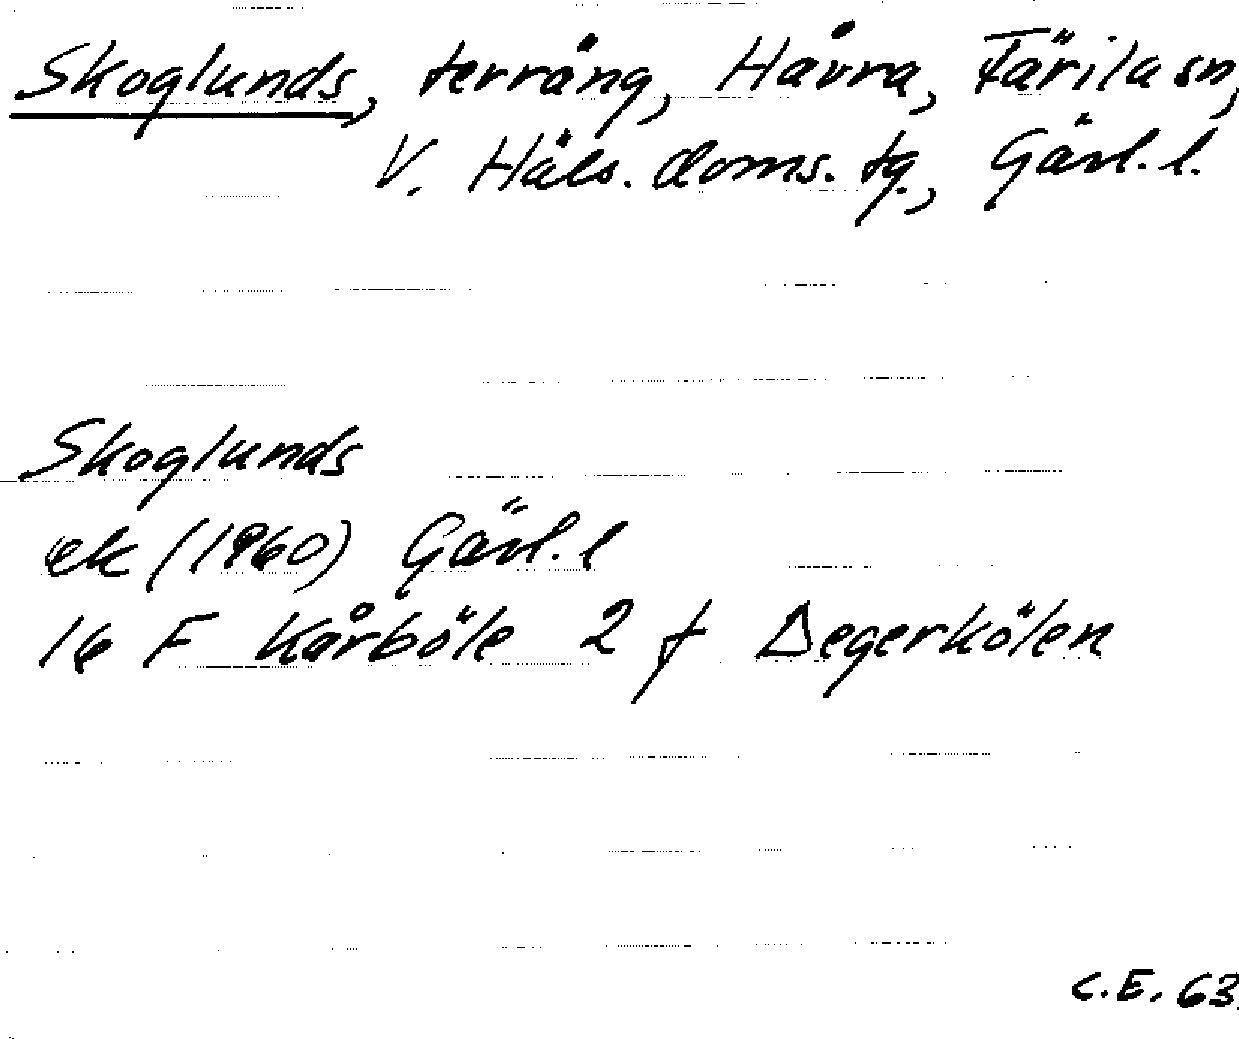 Skoglunds, terräng, Håvra, Färila sn,
V. Häls. doms. tg., Gävl. l.
Skoglunds
ek (1960) Gävl. l
16 F Kårböle 2 f Degerkölen
C.E. 63.